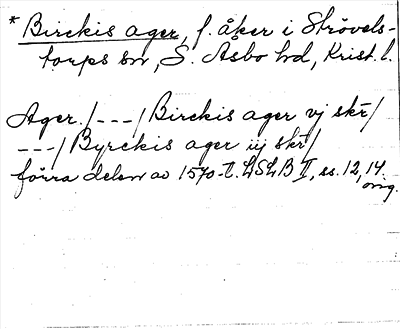 * Birckis ager, f. åker i Strövels-
torps sn, S. Åsbo hd, Krist. l.
Ager. /---/ Birckis ager vj skr/
---/ Byrckis ager iij skr/
förra delen av 1570-t. LSLB II, ss. 12, 14
orig.